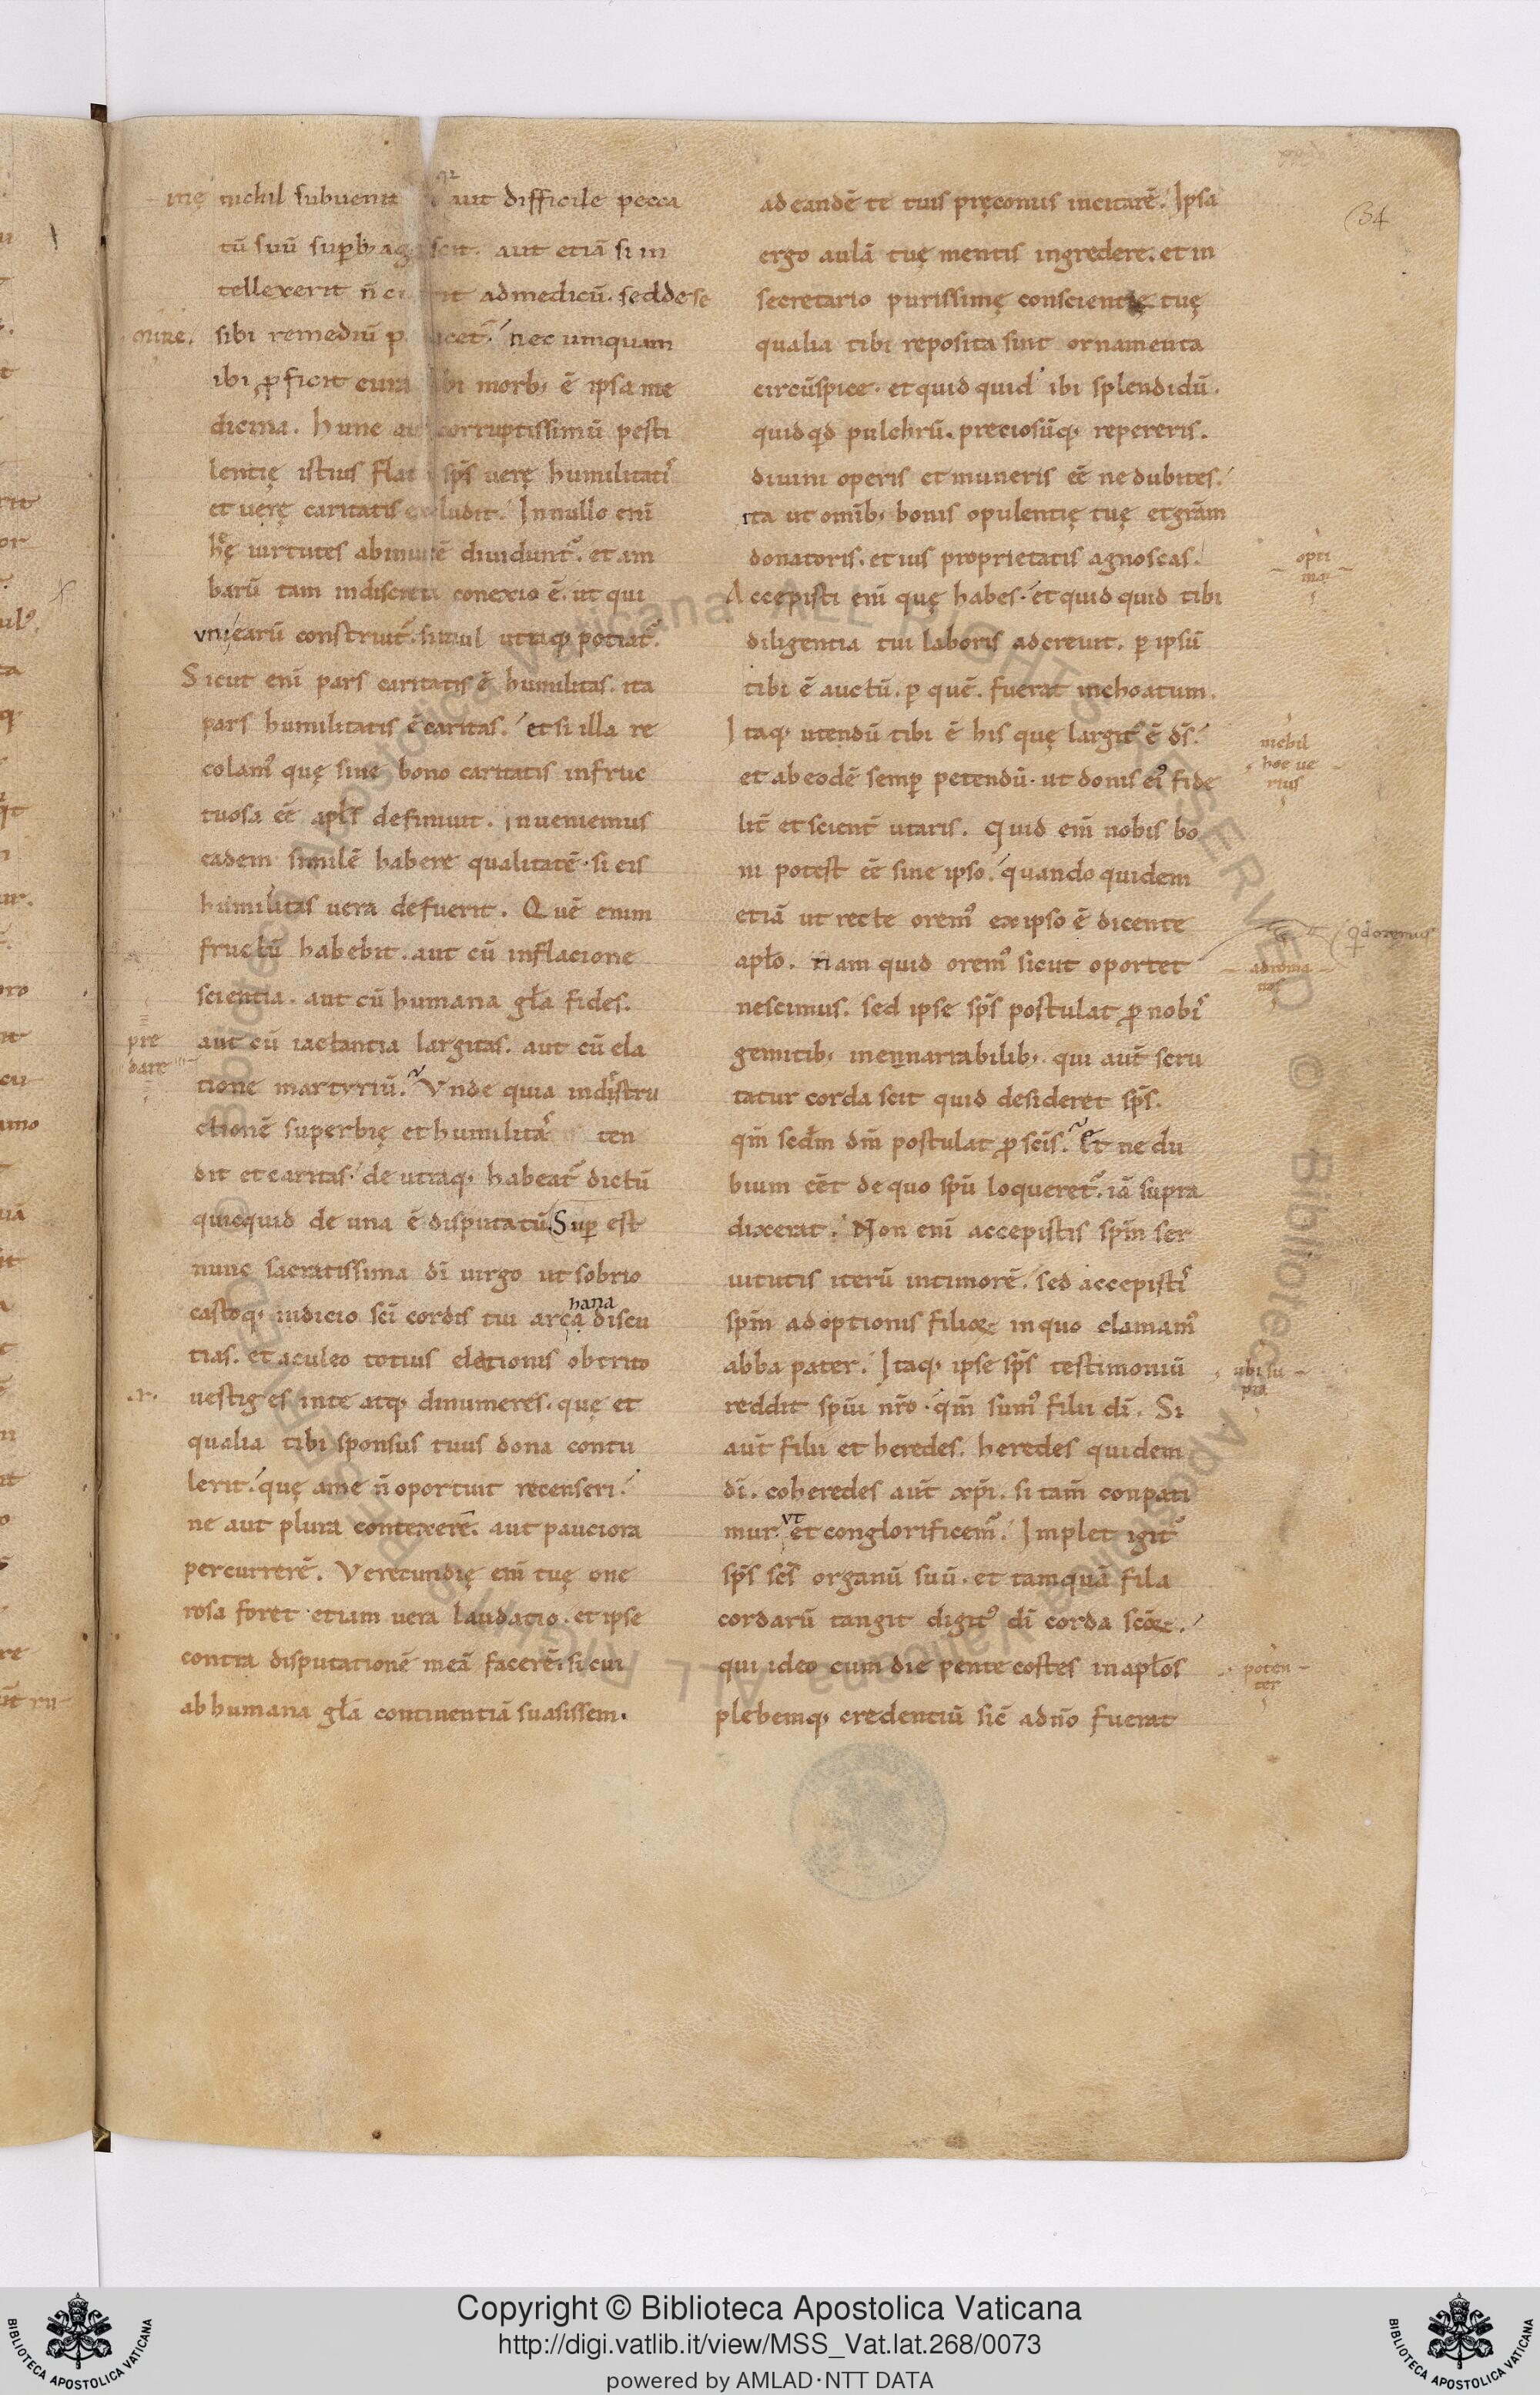 nichil subuenit aut difficile pecca
tū suū suꝑb; ag scit. aut etiā si in
tellexerit n̄ c rit ad medicū. sed de se
sibi remediū p cet᷑. nec umquam
ibi ꝓficit cura bi morb; ē ipsa me
dicina. hunc au corruptissimū pesti
lentię istius flat sp̄s uerę humilitatis
et uerę caritatis excludit. In nullo eni
hę uirtutes ab inuicē diuidunt᷑. et am
barū tam indiscreta conexio ē. ut qui
uni earū construit᷑. simul utraq; potiat᷑.
Sicut eni pars caritatis ē humilitas. ita
pars humilitatis ē caritas. et si illa re
colamꝰ quę sine bono caritatis infruc
tuosa eē apl̄s definiuit. inueniemus
eadem similē habere qualitatē. si eis
humilitas uera defuerit. Quē enim
fructū habebit. aut cū inflacione
scientia. aut cū humana gl̄a fides.
aut cū iactantia largitas. aut cū ela
tione martyriū. Vnde quia in distru
ctionē superbię et humilitas ten
dit et caritas. de utraq; habeat᷑ dictū
quicquid de una ē disputatū. Suꝑ est
nunc sacratissima dī uirgo ut sobrio
castoq; iudicio sc̄i cordis tui arcahana discu
tias. et aculeo totius eletionis obtrito
uestiges in te atq; dinumeres. quę et
qualia tibi sponsus tuus dona contu
lerit. quę a me n̄ oportuit recenseri.
ne aut plura contexerē. aut pauciora
percurrerē. Verecundię eni tuę one
rosa foret etiam uera laudatio. et ipse
contra disputationē meā facerē. si cui
ab humana gl̄a continentiā suasissem.
ad eandē te tuis pręconiis incitarē. Ipsa
ergo aulā tuę mentis ingredere. et in
secretario purissimę conscientię tuę
qualia tibi reposita sint ornamenta
circūspice. et quid quid ibi splendidū.
quid qd pulchrū. preciosūq; repereris.
diuini operis et muneris eē ne dubites.
ita ut omīb; bonis opulentię tuę et grām
donatoris. et ius proprietatis agnoscas.
Accepisti eni quę habes. et quid quid tibi
diligentia tui laboris adcreuit. ꝑ ipsū
tibi ē auctū. ꝑ quē. fuerat inchoatum.
Itaq; utendū tibi ē his quę largitꝰ ē ds̄.
et ab eodē semꝑ petendū. ut donis eiꝰ fide
lit̄ et scient̄ utaris. Quid eni nobis bo
ni potest eē sine ipso. quando quidem
etiā ut recte oremꝰ ex ipso ē dicente
apl̄o. nam quid oremꝰ sicut oportet
nescimus. sed ipse sp̄s postulat ꝓ nobis
gemitib; inennarrabilib;. qui aut̄ scru
tatur corda scit quid desideret sp̄s.
qm̄ scdm̄ dm̄ postulat ꝓ scīs. Et ne du
bium eēt de quo spū loqueret᷑. iā supra
dixerat. Non eni accepistis spm̄ ser
uitutis iterū in timorē. sed accepistis
spm̄ adoptionis filioꝝ in quo clamamꝰ
abba pater. Itaq; ipse sp̄s testimoniū
reddit spiui nr̄o. qm̄ sumꝰ filii dī. Si
aut̄ filii et heredes. heredes quidem
dī. coheredes aut̄ xp̄i. si tam̄ conpati
mur. ut et conglorificemꝰ. Implet igit᷑
sp̄s sc̄s organū suū. et tamquā fila
cordarū tangit digitꝰ dī corda scōꝝ.
qui ideo cum die pentecostes in apl̄os
plebemq; credentiū sic̄ ad no fuerat
34
mire.
pre
dare
.r.
opti
ma
nichil
hoc ue
rius
qd oremus
ad roma
nos
ubi su
pra
poten
ter
Copyright © Biblioteca Apostolica Vaticana
http://digi.vatlib.it/view/MSS_Vat.lat.268/0073
powered by AMLAD·NTT DATA
BIBLIOTECA APOSTOLICA VATICANA
BIBLIOTECA APOSTOLICA VATICANA